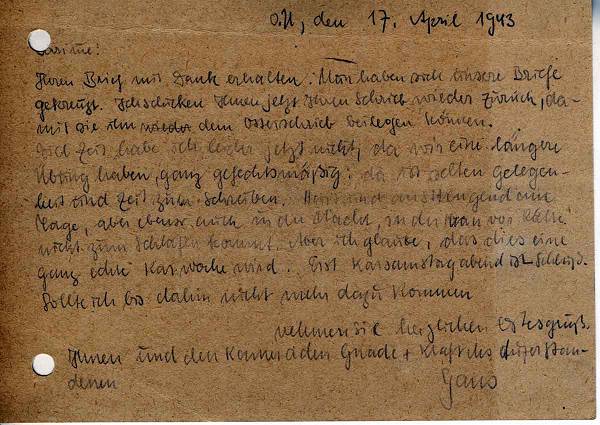 O.U., den 17. April 1943
Ihren Brief mit Dank erhalten. Nun haben sich unsere Briefe
gekreuzt. Ich schicke Ihnen jetzt Ihren Schrieb wieder zurück, da-
mit sie ihn wieder dem Osterschrieb beilegen können.
Viel Zeit habe ich leider jetzt nicht, da wir eine längere
Übung haben, ganz gefechtsmäßig: da ist selten gelegen-
heit und Zeit zum Schreiben. Heiss und anstrengend am
Tage, aber ebenso auch in der Nacht, in der man vor Kälte
nicht zum Schlafen kommt. Aber ich glaube, das dies eine
ganz echte Karwoche wird. Erst Karsamstagabend ist Schluß.
Sollte ich bis dahin nicht mehr dazu kommen
nehmen sie herzlichen Ostergruß.
Ihnen und den Kameraden Gnade + Kraft des Auferstan-
denen